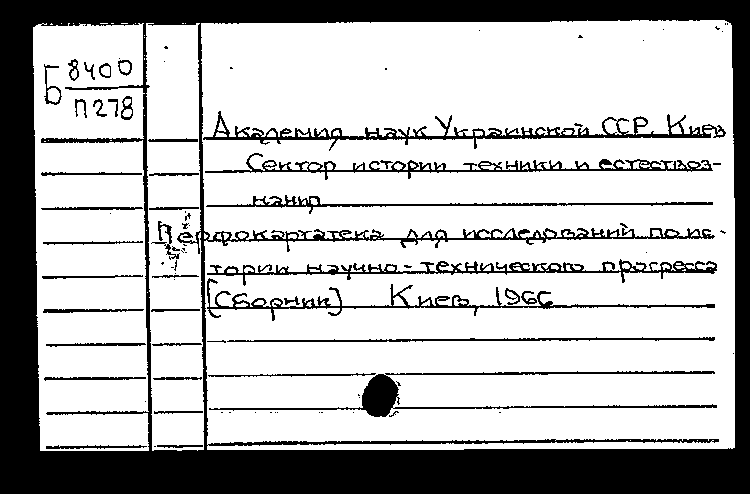 Б 8400
П278
Академия наук Украинской ССР. Киев
Сектор истории техники и естествоз-
нания
Перфокартатека для исследований по ис-
тории научно-технического прогресса
[Сборник] Киев, 1966